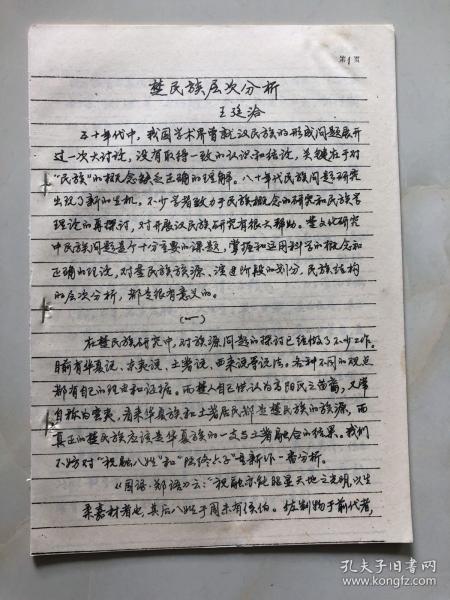 第1页
楚民族层次分析
王廷洽
五十年代中，我国学术界曾就汉民族的形成问题展开
过一次大讨论，没有取得一致的认识和结论，关键在于对
“民族”的概念缺乏正确的理解。八十年代民族问题研究
出现了新的生机。不少学者致力于民族概念的研究和民族学
理论的再探讨，对开展汉民族研究有很大帮助。楚文化研究
中民族问题是个十分主要的课题，掌握和运用科学的概念和
正确的理论，对楚民族族源、演进阶段的划分，民族结构
的层次分析，都是很有意义的。
（一）
在楚民族研究中，对族源问题的探讨已经做了不少工作。
目前有华夏说、东夷说、土著说、西来说等说法。各种不同的观点
都有自己的理由和证据。而楚人自己供认为高阳氏之苗裔，又常
自称为蛮夷，看来华夏族和土著居民都是楚民族的族源，而
真正的楚民族应该是华夏族的一支与土著融合的结果。我们
不妨对“祝融八姓”和“陆终六子”重新作一番分析。
《国语·郑语》云：“祝融亦能昭显天地之光明，以生
柔嘉材者也，其后八姓于周未有侯伯。佐制物于前代者，
孔夫子旧书网
www.kongfz.com